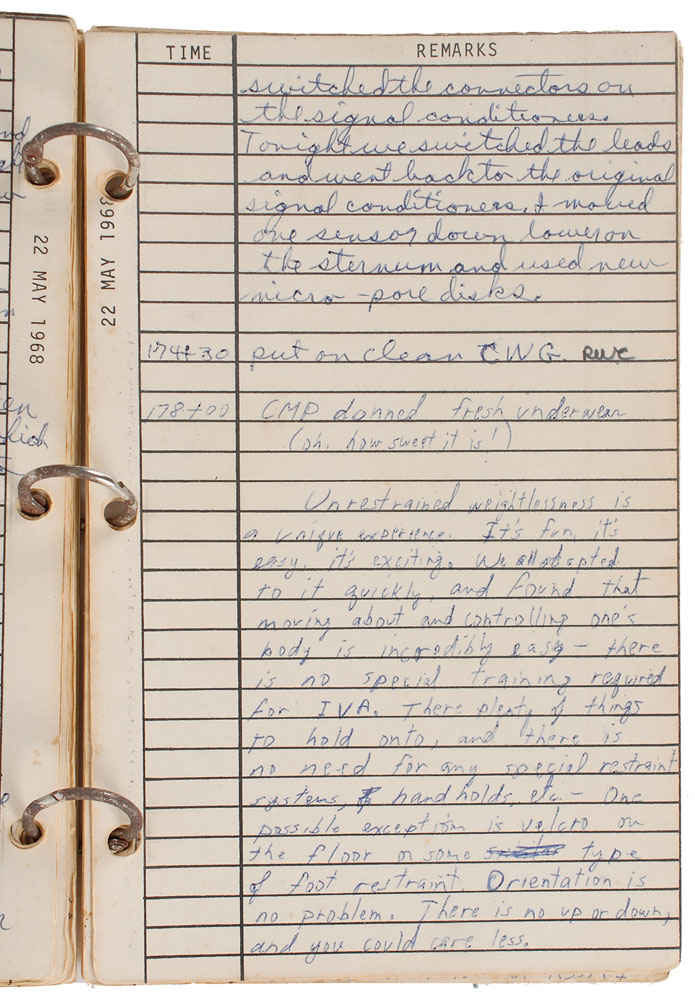 TIME REMARKS
switched the connectors on
the signal conditioners.
Tonight we switched the leads
and went back to the original
signal conditioners. I moved
one sensor down lower on
the sternum and used new
micro-pore disks.
174+30 put on clean CWG. RWC
178+00 CMP donned fresh underwear
(oh, how sweet it is!)
Unrestrained weightlessness is
a unique experience. It's fun, it's
easy, it's exciting. We all adapted
to it quickly, and found that
moving about and controlling one's
body is incredibly easy - there
is no special training required
for IVA. There plenty of things
to hold onto, and there is
no need for any special restraint
systems, hand holds, etc. - One
possible exception is velcro on
the floor or some type
of foot restraint. Orientation is
no problem. There is no up or down,
and you could care less.
22 MAY 1968
22 MAY 1968